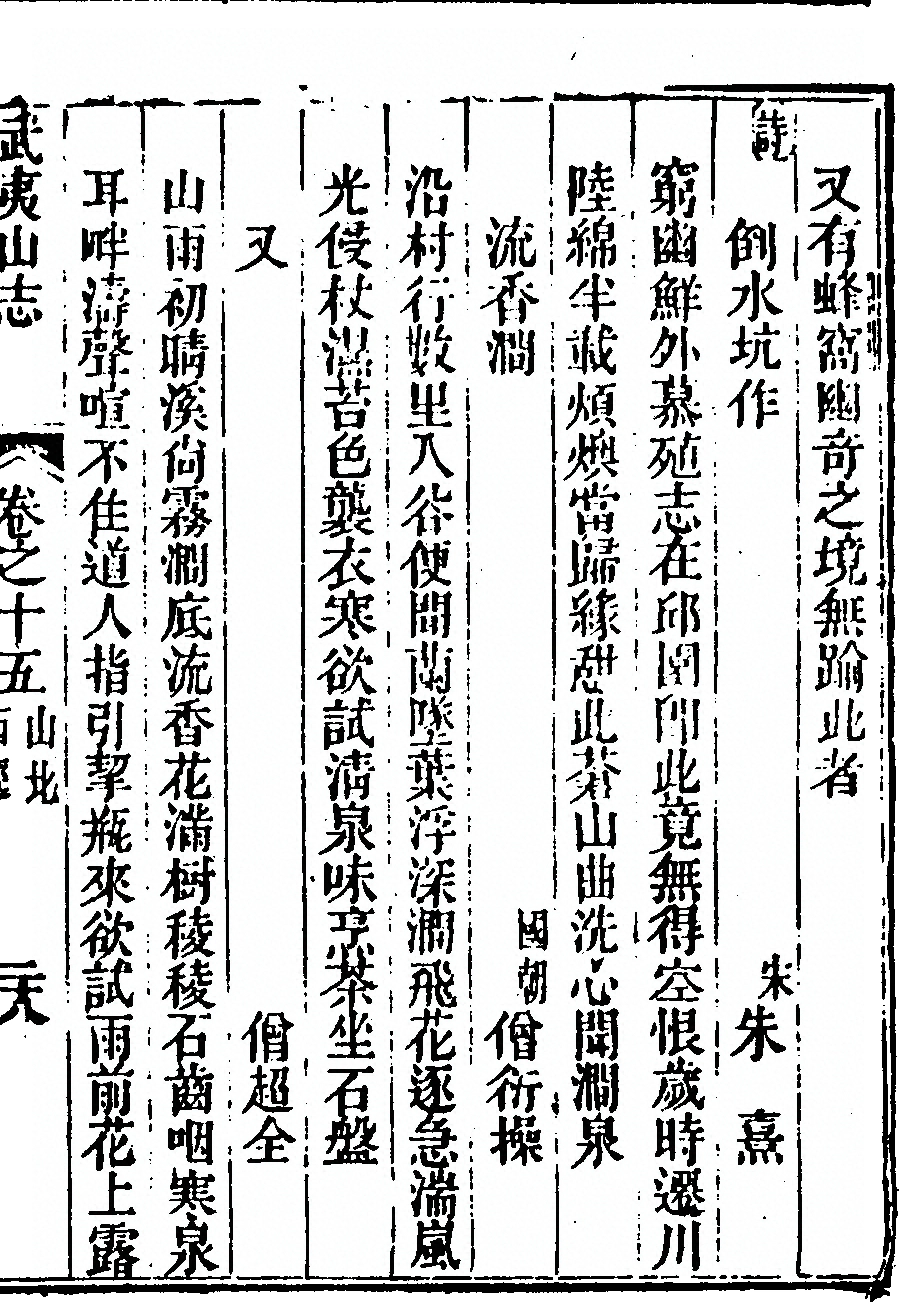 又有蜂窩幽奇之境無踰此者
詩
倒水坑作 宋朱熹
窮幽鮮外慕殖志在邱園即此竟無得空恨歲時遷川
陸綿半載煩燠當歸緣憩此蒼山曲洗心聞澗泉
流香澗 國朝僧衍操
沿村行數里入谷便聞蘭墜葉浮深澗飛花逐急湍嵐
光侵杖濕苔色襲衣寒欲試清泉味烹茶坐石盤
又 僧超全
山雨初晴溪尚霧澗底流香花滿樹稜稜石齒咽寒泉
耳畔濤聲喧不住道人指引挈瓶來欲試雨前花上露
武夷山志 卷之十五 山北 二六